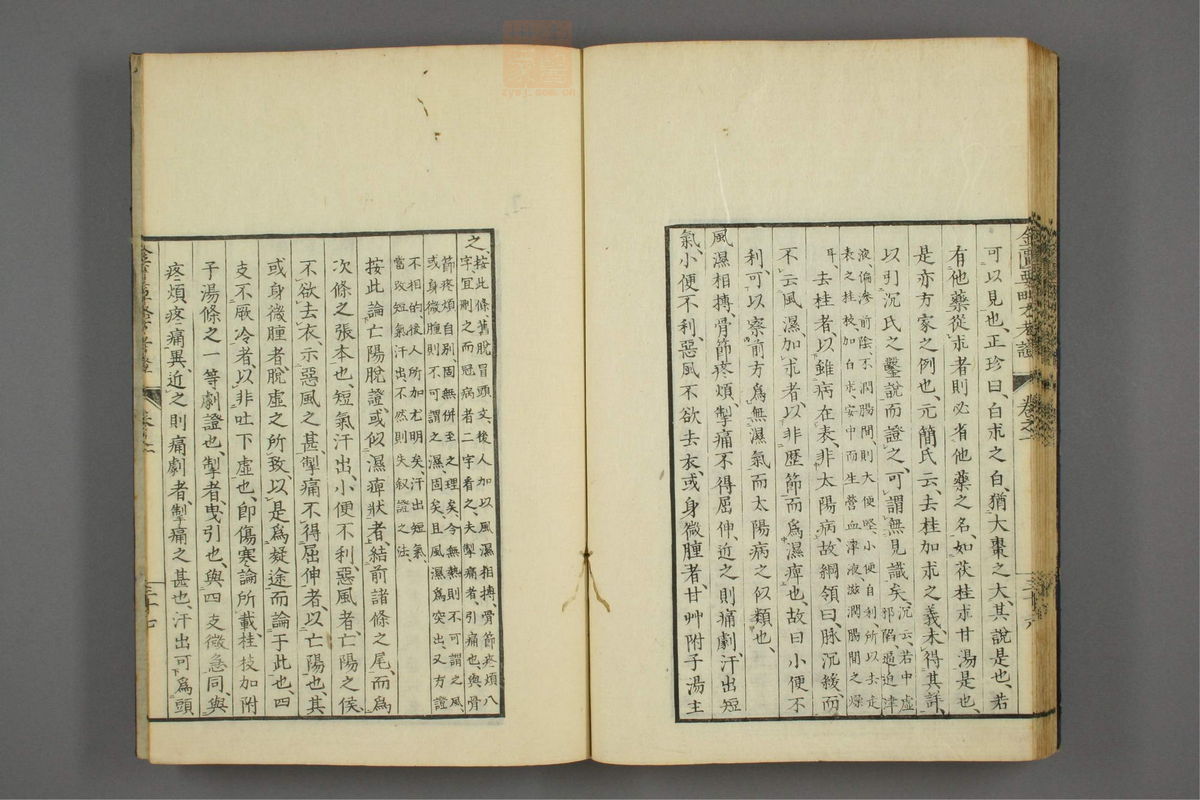 可以見也、正珍曰、白朮之白、猶大棗之大、其說是也、若
有他藥從朮者、則必省他藥之名、如苓桂朮甘湯是也、
是亦方家之例也、元簡氏云、去桂加朮之義未得其詳、
以引沉氏之鑿說而證之、可謂無見識矣、沉云、若中虛邪陷、逼迫津
液偏滲前陰、不潤腸間、則大便堅、小便自利、所以去走
表之桂枝、加白朮、安中而生營血津液、滋潤腸間之燥
耳、去桂者、以雖病在表、非太陽病、故綱領曰、脉沉緩、而
不云風濕、加朮者、以非歷節而爲濕痺也、故曰小便不
利、可以察前方爲無濕氣而太陽病之似類也、
風濕相搏、骨節疼煩、掣痛不得屈伸、近之則痛劇、汗出短
氣、小便不利、惡風不欲去衣、或身微腫者、甘艸附子湯主
之、按此條舊脫冒頭文、後人加以風濕相搏、骨節疼煩八
字、宜刪之而冠病者二字看之、夫掣痛者、引痛也、與骨
節疼煩自別、固無併至之理矣、今無熱則不可謂之風、
或身微腫則不可謂之濕、固矣、且風濕爲突出、又方證
不相的、後人所加尤明矣、汗出短氣、
當攺短氣汗出、不然則失叙證之法、
按此論亡陽脫證、或似濕痺狀者、結前諸條之尾、而爲
次條之張本也、短氣汗出、小便不利、惡風者、亡陽之候
不欲去衣、示惡風之甚、掣痛不得屈伸者、以亡陽也、其
或身微腫者、脫虛之所致、以是爲凝途而論于此也、四
支不厥冷者、以非吐下虛也、卽傷寒論所載桂枝加附
子湯條之一等劇證也、掣者、曳引也、與四支微急同、與
疼煩、疼痛異、近之則痛劇者、掣痛之甚也、汗出可爲頭
金匱要略
卷之一
三十六
三十七
zysj.com.cn